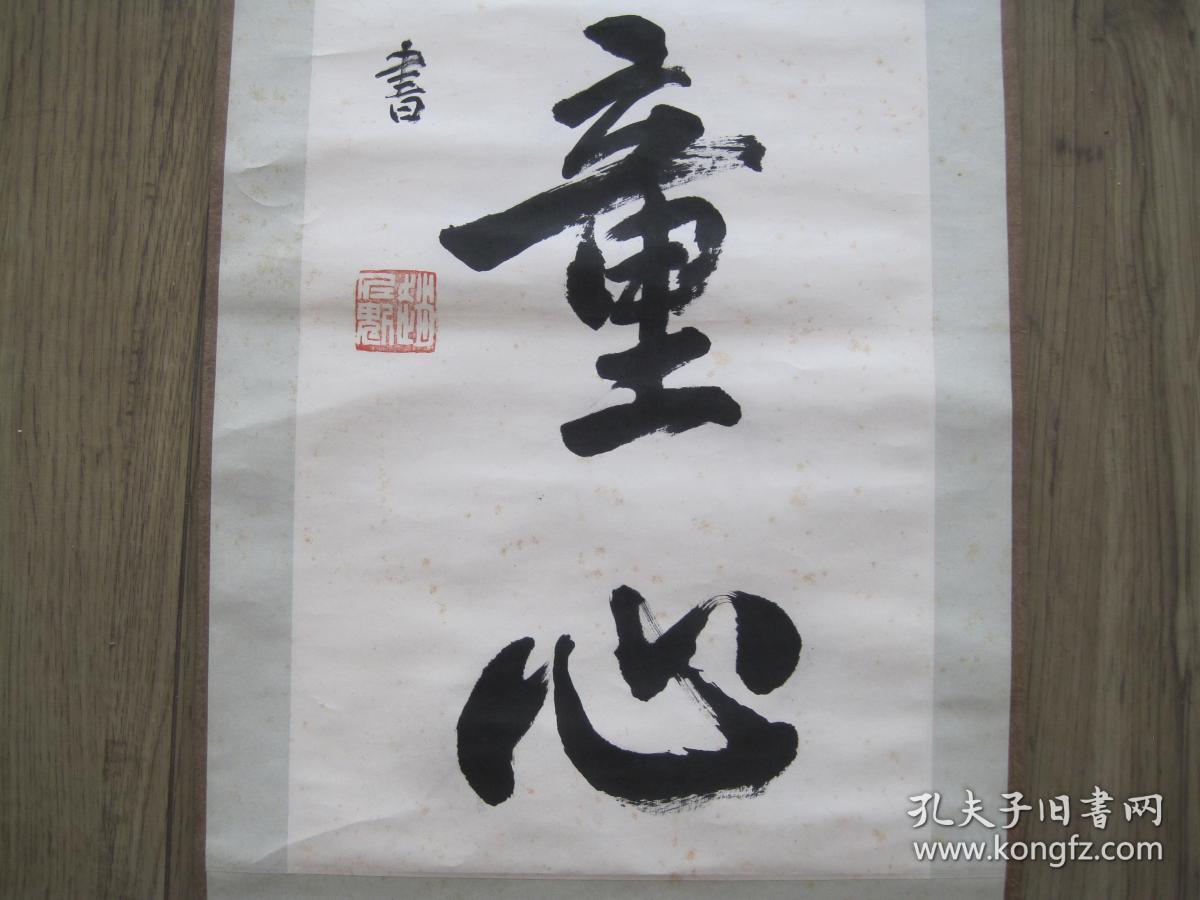 童心
書
孔夫子旧書网
www.kongfz.com